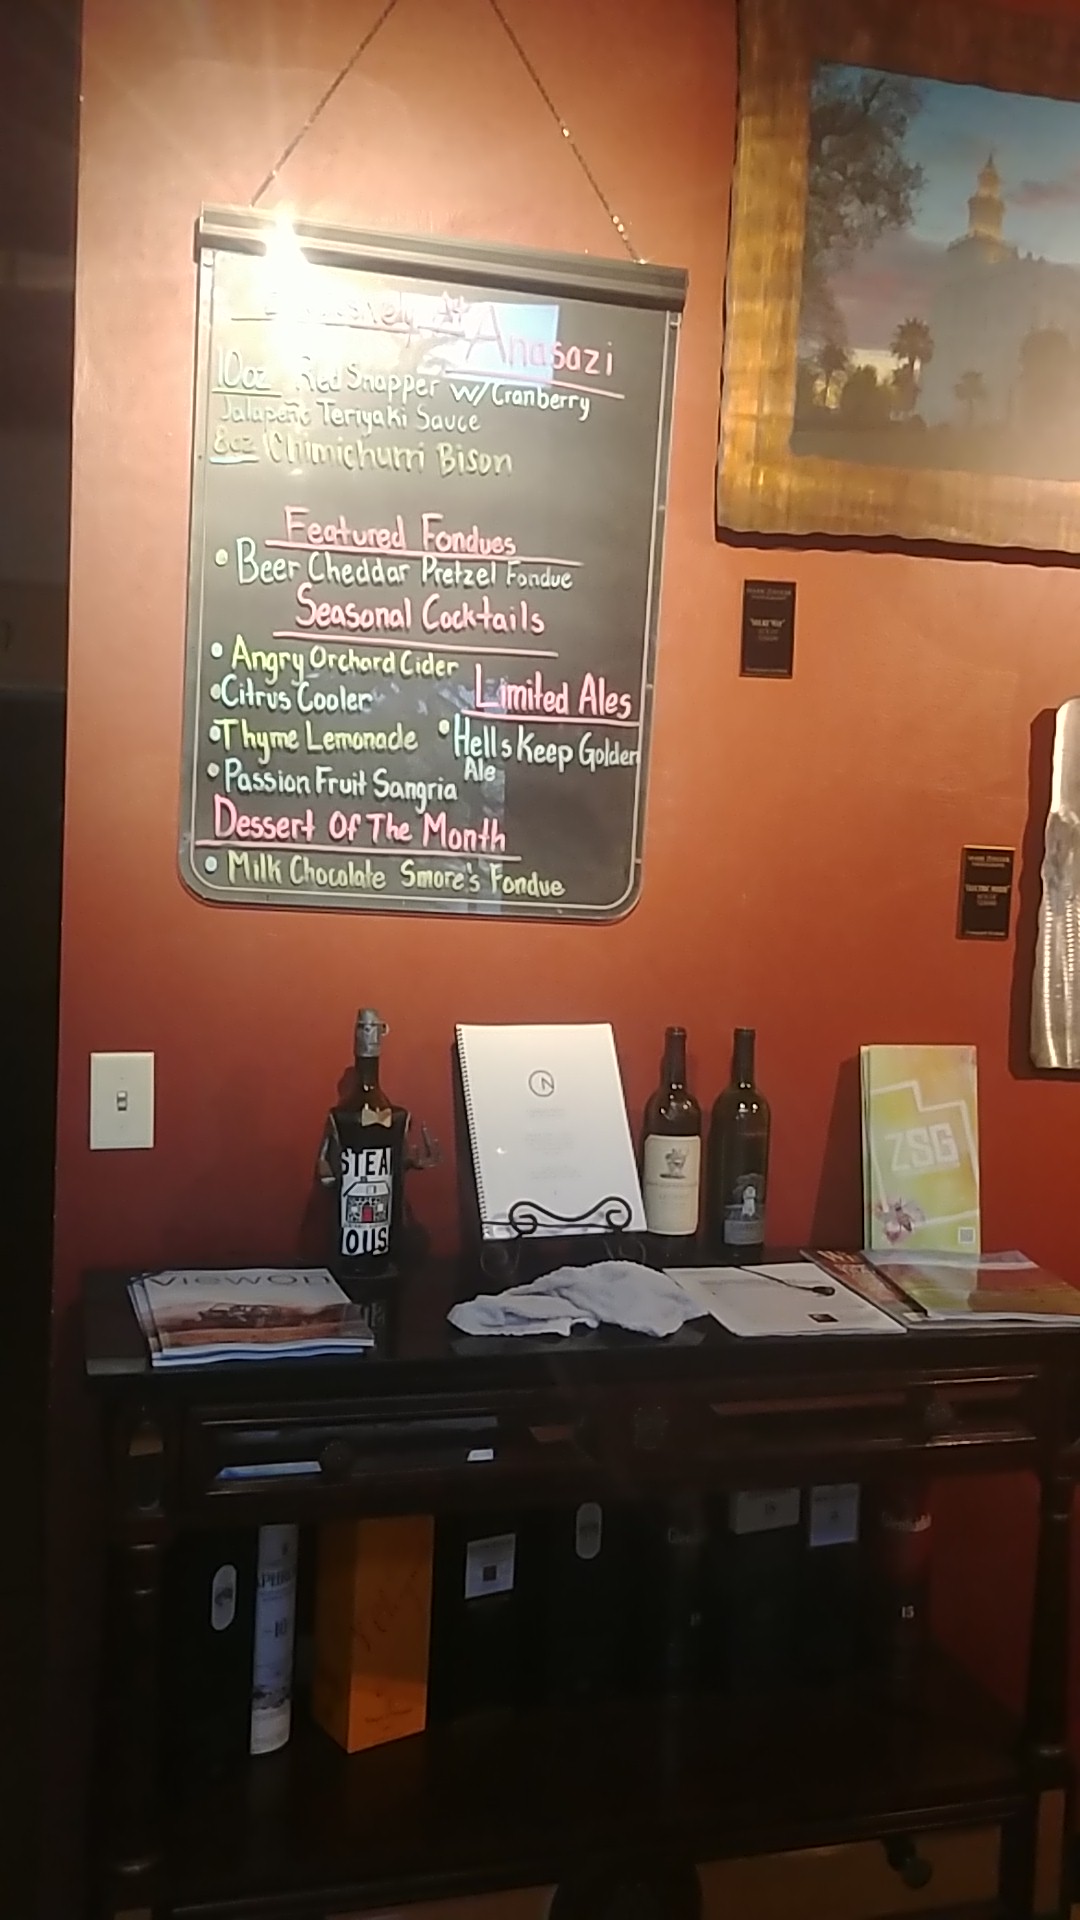 Exclusively At Anasazi
10oz Red Snapper w/Cranberry
Jalapeño Teriyaki Sauce
8oz Chimichurri Bison
Featured Fondues
• Beer Cheddar Pretzel Fondue
Seasonal Cocktails
• Angry Orchard Cider
• Citrus Cooler
• Thyme Lemonade
• Passion Fruit Sangria
Limited Ales
• Hells Keep Golden
Ale
Dessert Of The Month
• Milk Chocolate Smore's Fondue
STEA
OUS
ZSG
VIEWON
10
15